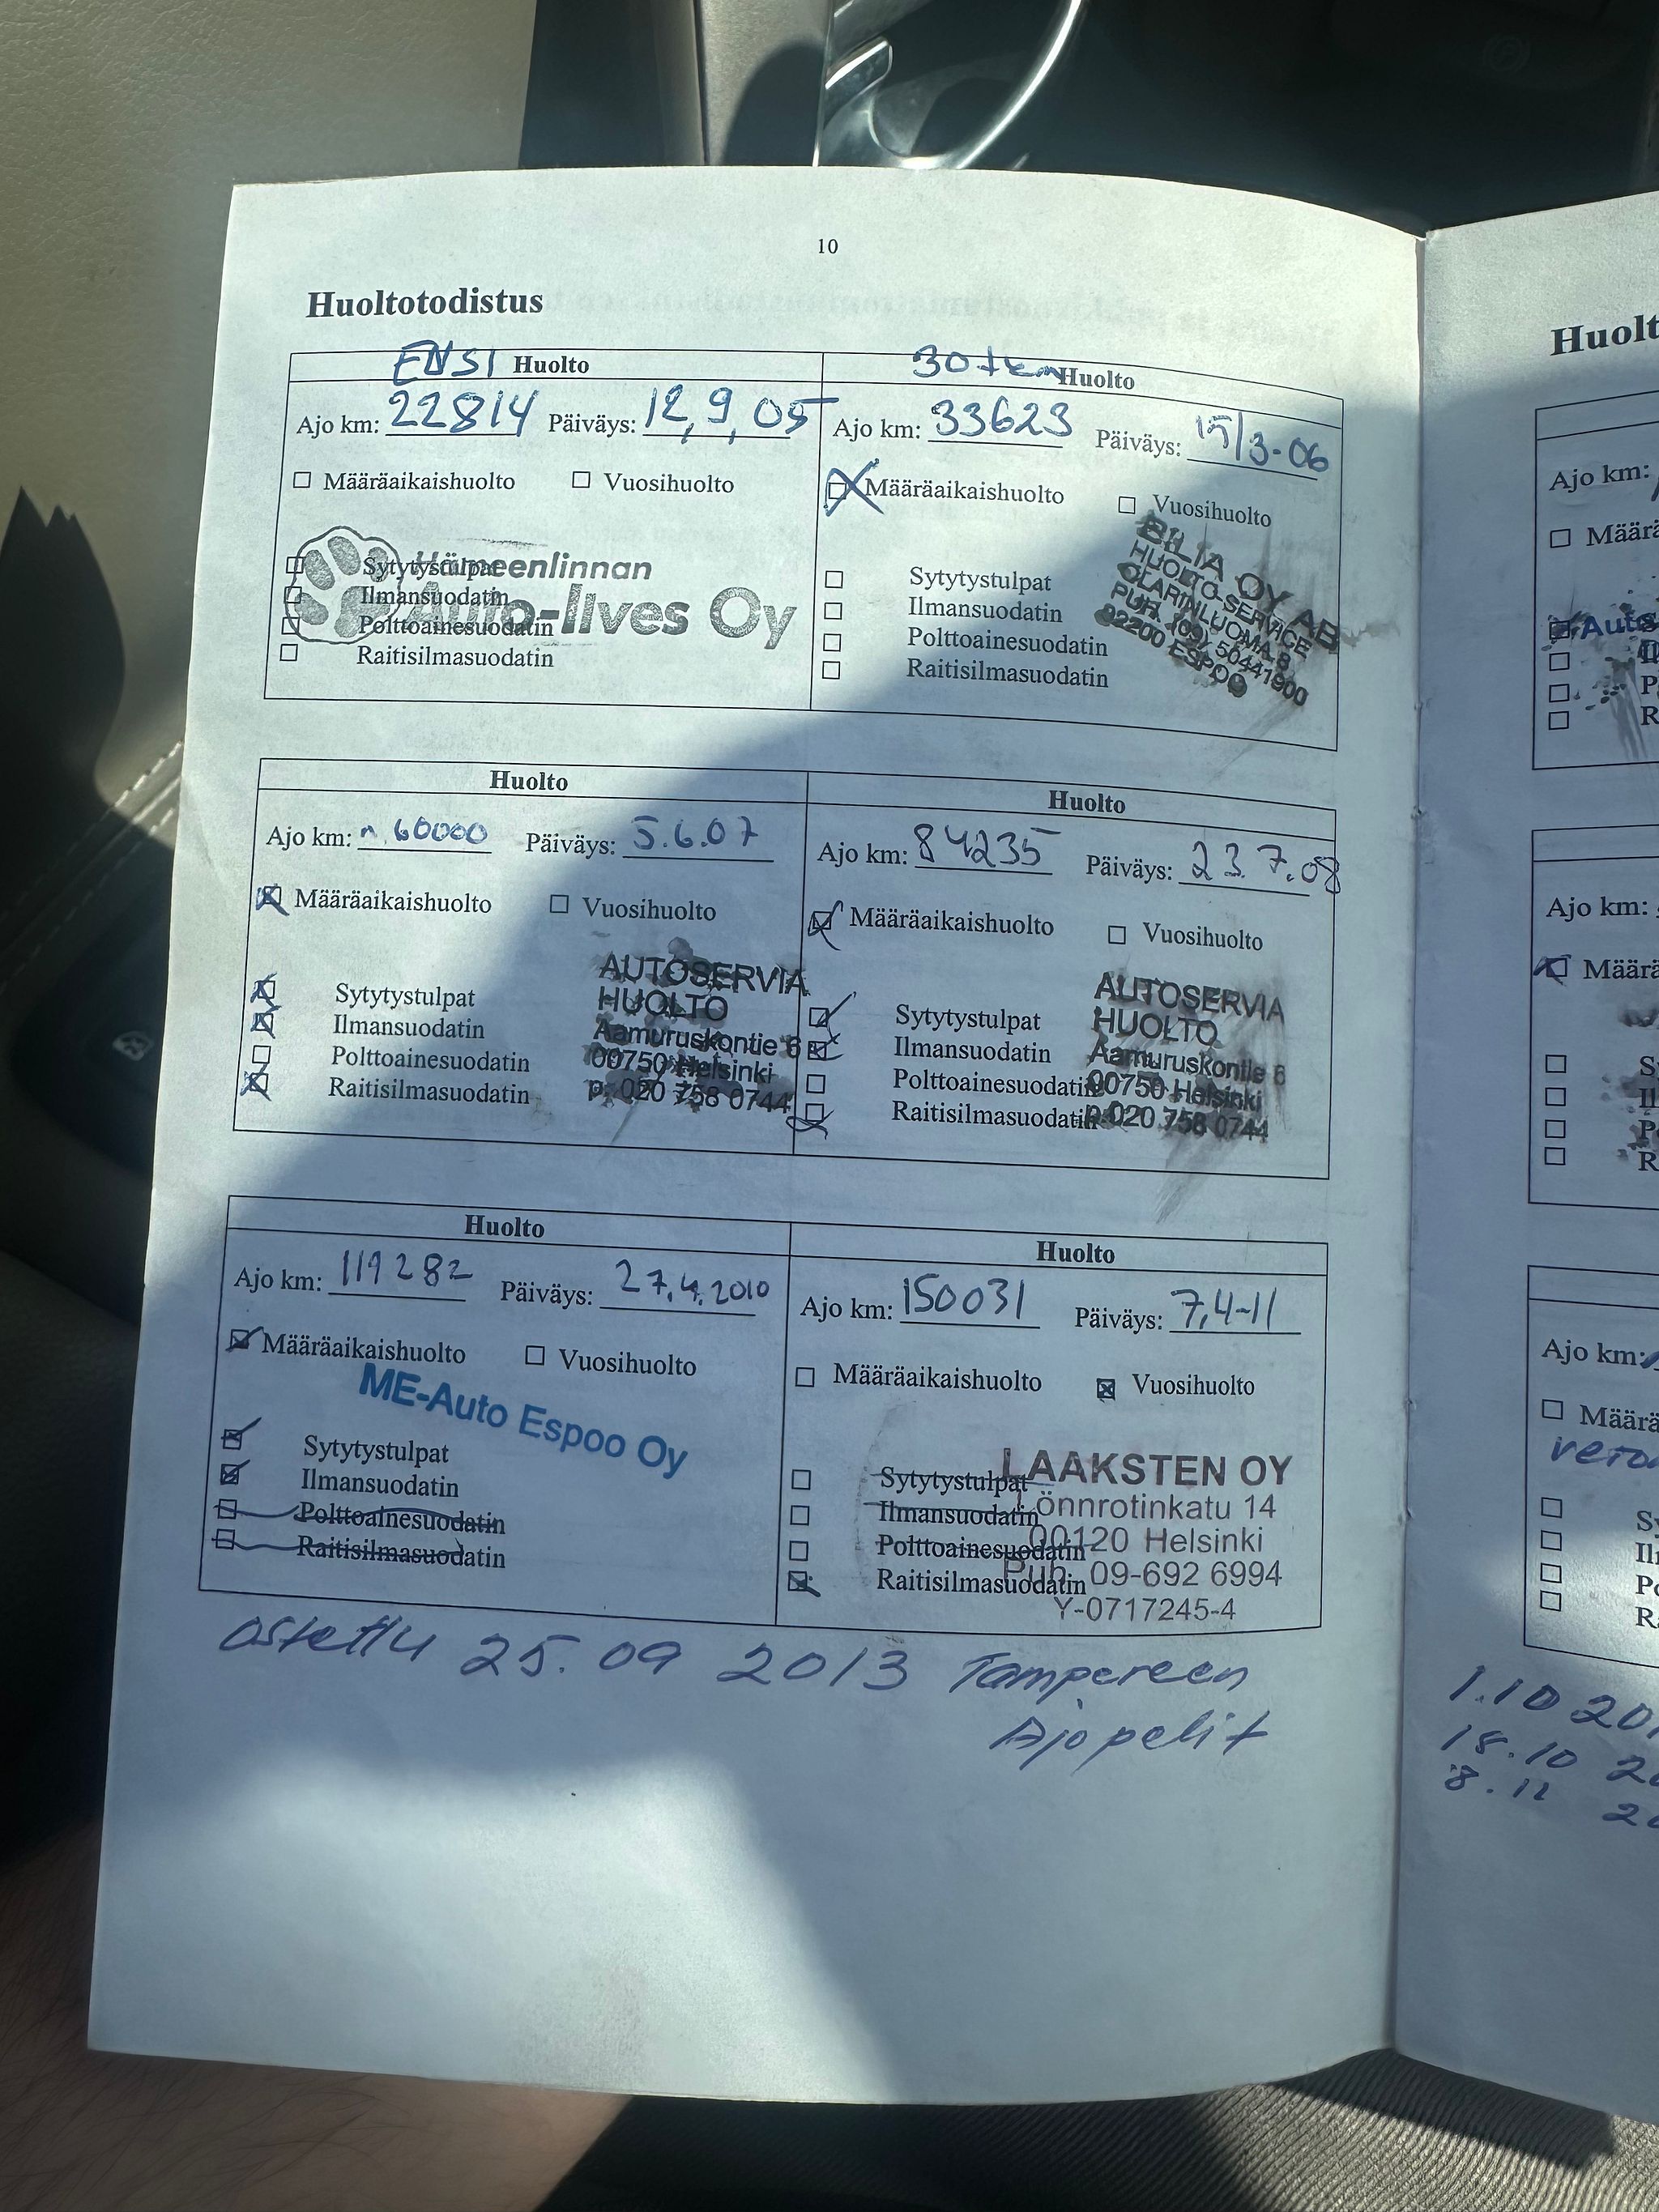 10
Huoltotodistus
ENSI Huolto
Ajo km: 22814 Päiväys: 12,9,05
☐ Määräaikaishuolto ☐ Vuosihuolto
Hämeenlinnan
Auto-lives Oy
☐ Sytytystulpat
☐ Ilmansuodatin
☐ Polttoainesuodatin
☐ Raitisilmasuodatin
30 tkm Huolto
Ajo km: 33623 Päiväys: 15/3-06
☒ Määräaikaishuolto ☐ Vuosihuolto
BILIA OY AB
HUOLTO-SERVICE
OLARINLUOMA 8
PUH. (09) 50441900
02200 ESPOO
☐ Sytytystulpat
☐ Ilmansuodatin
☐ Polttoainesuodatin
☐ Raitisilmasuodatin
Huolto
Ajo km: n 60000 Päiväys: 5.6.07
☒ Määräaikaishuolto ☐ Vuosihuolto
☒ Sytytystulpat
☒ Ilmansuodatin
☐ Polttoainesuodatin
☒ Raitisilmasuodatin
AUTOSERVIA
HUOLTO
Aamuruskontie 6
00750 Helsinki
p. 020 758 0744
Huolto
Ajo km: 84235 Päiväys: 23.7.08
☒ Määräaikaishuolto ☐ Vuosihuolto
☒ Sytytystulpat
☒ Ilmansuodatin
☐ Polttoainesuodatin
☒ Raitisilmasuodatin
AUTOSERVIA
HUOLTO
Aamuruskontie 6
00750 Helsinki
p. 020 758 0744
Huolto
Ajo km: 119282 Päiväys: 27.4.2010
☒ Määräaikaishuolto ☐ Vuosihuolto
ME-Auto Espoo Oy
☒ Sytytystulpat
☒ Ilmansuodatin
☐ Polttoainesuodatin
☐ Raitisilmasuodatin
Huolto
Ajo km: 150031 Päiväys: 7,4-11
☐ Määräaikaishuolto ☒ Vuosihuolto
☐ Sytytystulpat
☐ Ilmansuodatin
☐ Polttoainesuodatin
☒ Raitisilmasuodatin
LAAKSTEN OY
Lönnrotinkatu 14
00120 Helsinki
Puh. 09-692 6994
Y-0717245-4
Ostettu 25.09 2013 Tampereen
Ajopelit
Huolt
Ajo km:
☐ Määrä
Auto
Ajo km:
☒ Määrä
Ajo km:
☐ Määrä
1.10 20
18.10 20
8.11 20